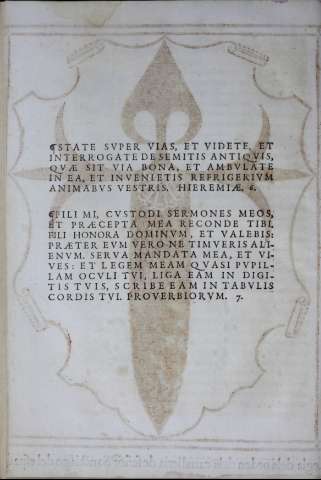 ¶STATE SVPER VIAS, ET VIDETE, ET
INTERROGATE DE SEMITIS ANTIQVIS,
QVÆ SIT VIA BONA, ET AMBVLATE
IN EA, ET INVENIETIS REFRIGERIVM
ANIMABVS VESTRIS. HIEREMIÆ. 6.
¶FILI MI, CVSTODI SERMONES MEOS,
ET PRÆCEPTA MEA RECONDE TIBI.
FILI HONORA DOMINVM, ET VALEBIS:
PRÆTER EVM VERO NE TIMVERIS ALI-
ENVM. SERVA MANDATA MEA, ET VI-
VES: ET LEGEM MEAM QVASI PVPIL-
LAM OCVLI TVI, LIGA EAM IN DIGI-
TIS TVIS, SCRIBE EAM IN TABVLIS
CORDIS TVI. PROVERBIORVM. 7.